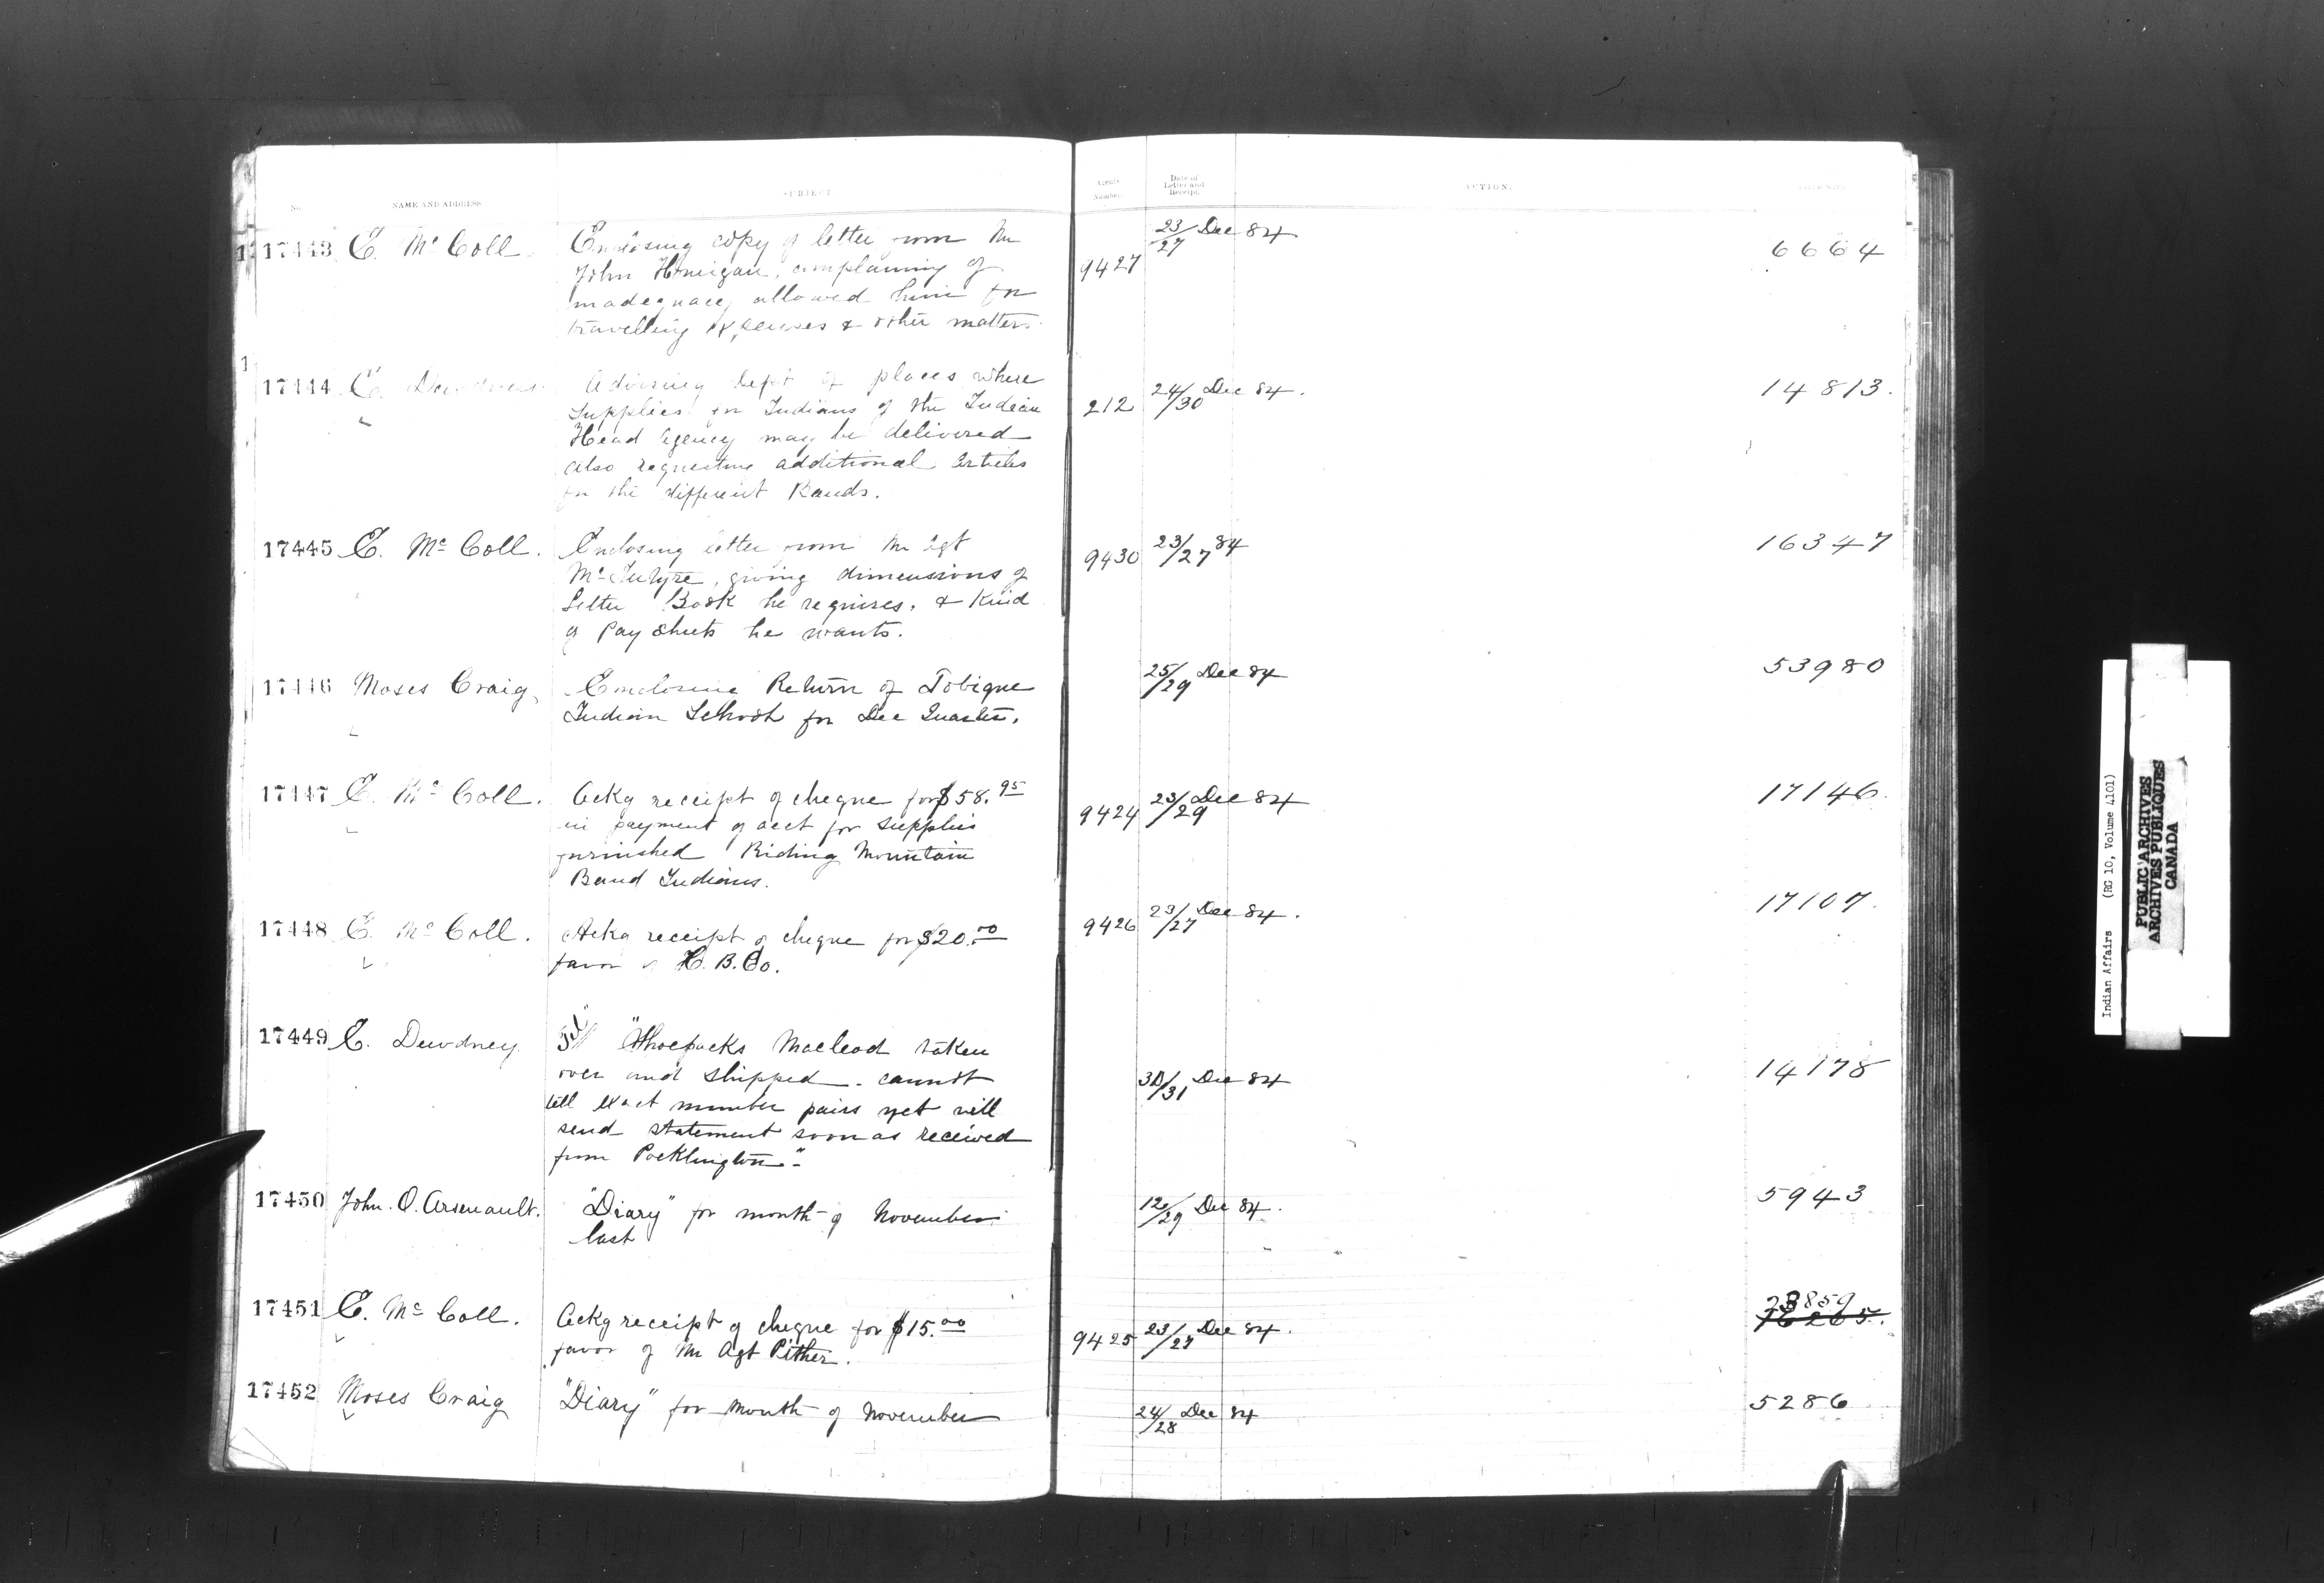 No. NAME AND ADDRESS SUBJECT Agents Number. Date of Letter and Receipt. ACTION.
17443 E. Mc Coll. Enclosing copy of letter from Mr 9427 23/27 Dec 84 6664
John complaining of
inadequacy allowed him for
travelling expenses & other matters.
17444 E. Dewdney Advising Dept of places where 212 24/30 Dec 84. 14813.
Supplies for Indians of the Indian
Head Agency may be delivered
also requesting additional articles
for the different Bands.
17445 E. Mc Coll. Enclosing letter from Mr Agt 9430 23/27 84 16347
McIntyre, giving dimensions of
Letter Book he requires, & Kind
of Pay Sheets he wants.
17446 Moses Craig, Enclosing Return of Tobique 25/29 Dec 84 53980
Indian School for Dec Quarter.
17447 E. Mc Coll. Ackg receipt of cheque for $58.95 9424 23/29 Dec 84 17146.
in payment of acct for supplies
furnished Riding Mountain
Band Indians.
17448 E. Mc Coll. Ackg receipt of cheque for $20.00 9426 23/27 Dec 84. 17107.
favor of H. B. Co.
17449 E. Dewdney. Tel "Shoepacks Macleod taken 30/31 Dec 84 14178
over and shipped - cannot
tell exact number pairs yet will
send statement soon as received
from Pocklington-"
17450 John. O. Arsenault. "Diary" for month of November 12/29 Dec 84. 5943
last
17451 E. Mc Coll. Ackg receipt of cheque for $15.00 9425 23/27 Dec 84. 23859
favor of Mr Agt Pither.
17452 Moses Craig "Diary" for month of November 24/28 Dec 84 5286
Indian Affairs (RG 10, Volume 4101)
PUBLIC ARCHIVES
ARCHIVES PUBLIQUES
CANADA